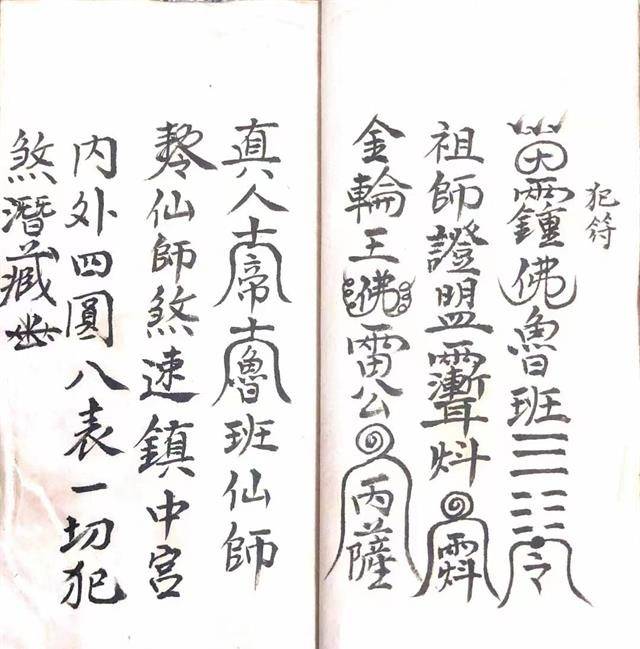 犯符
佛魯班☰☷令
祖師證盟
金輪王佛雷公丙薩
真人帝魯班仙師
仙師煞速鎮中宮
內外四圓八表一切犯
煞潛藏